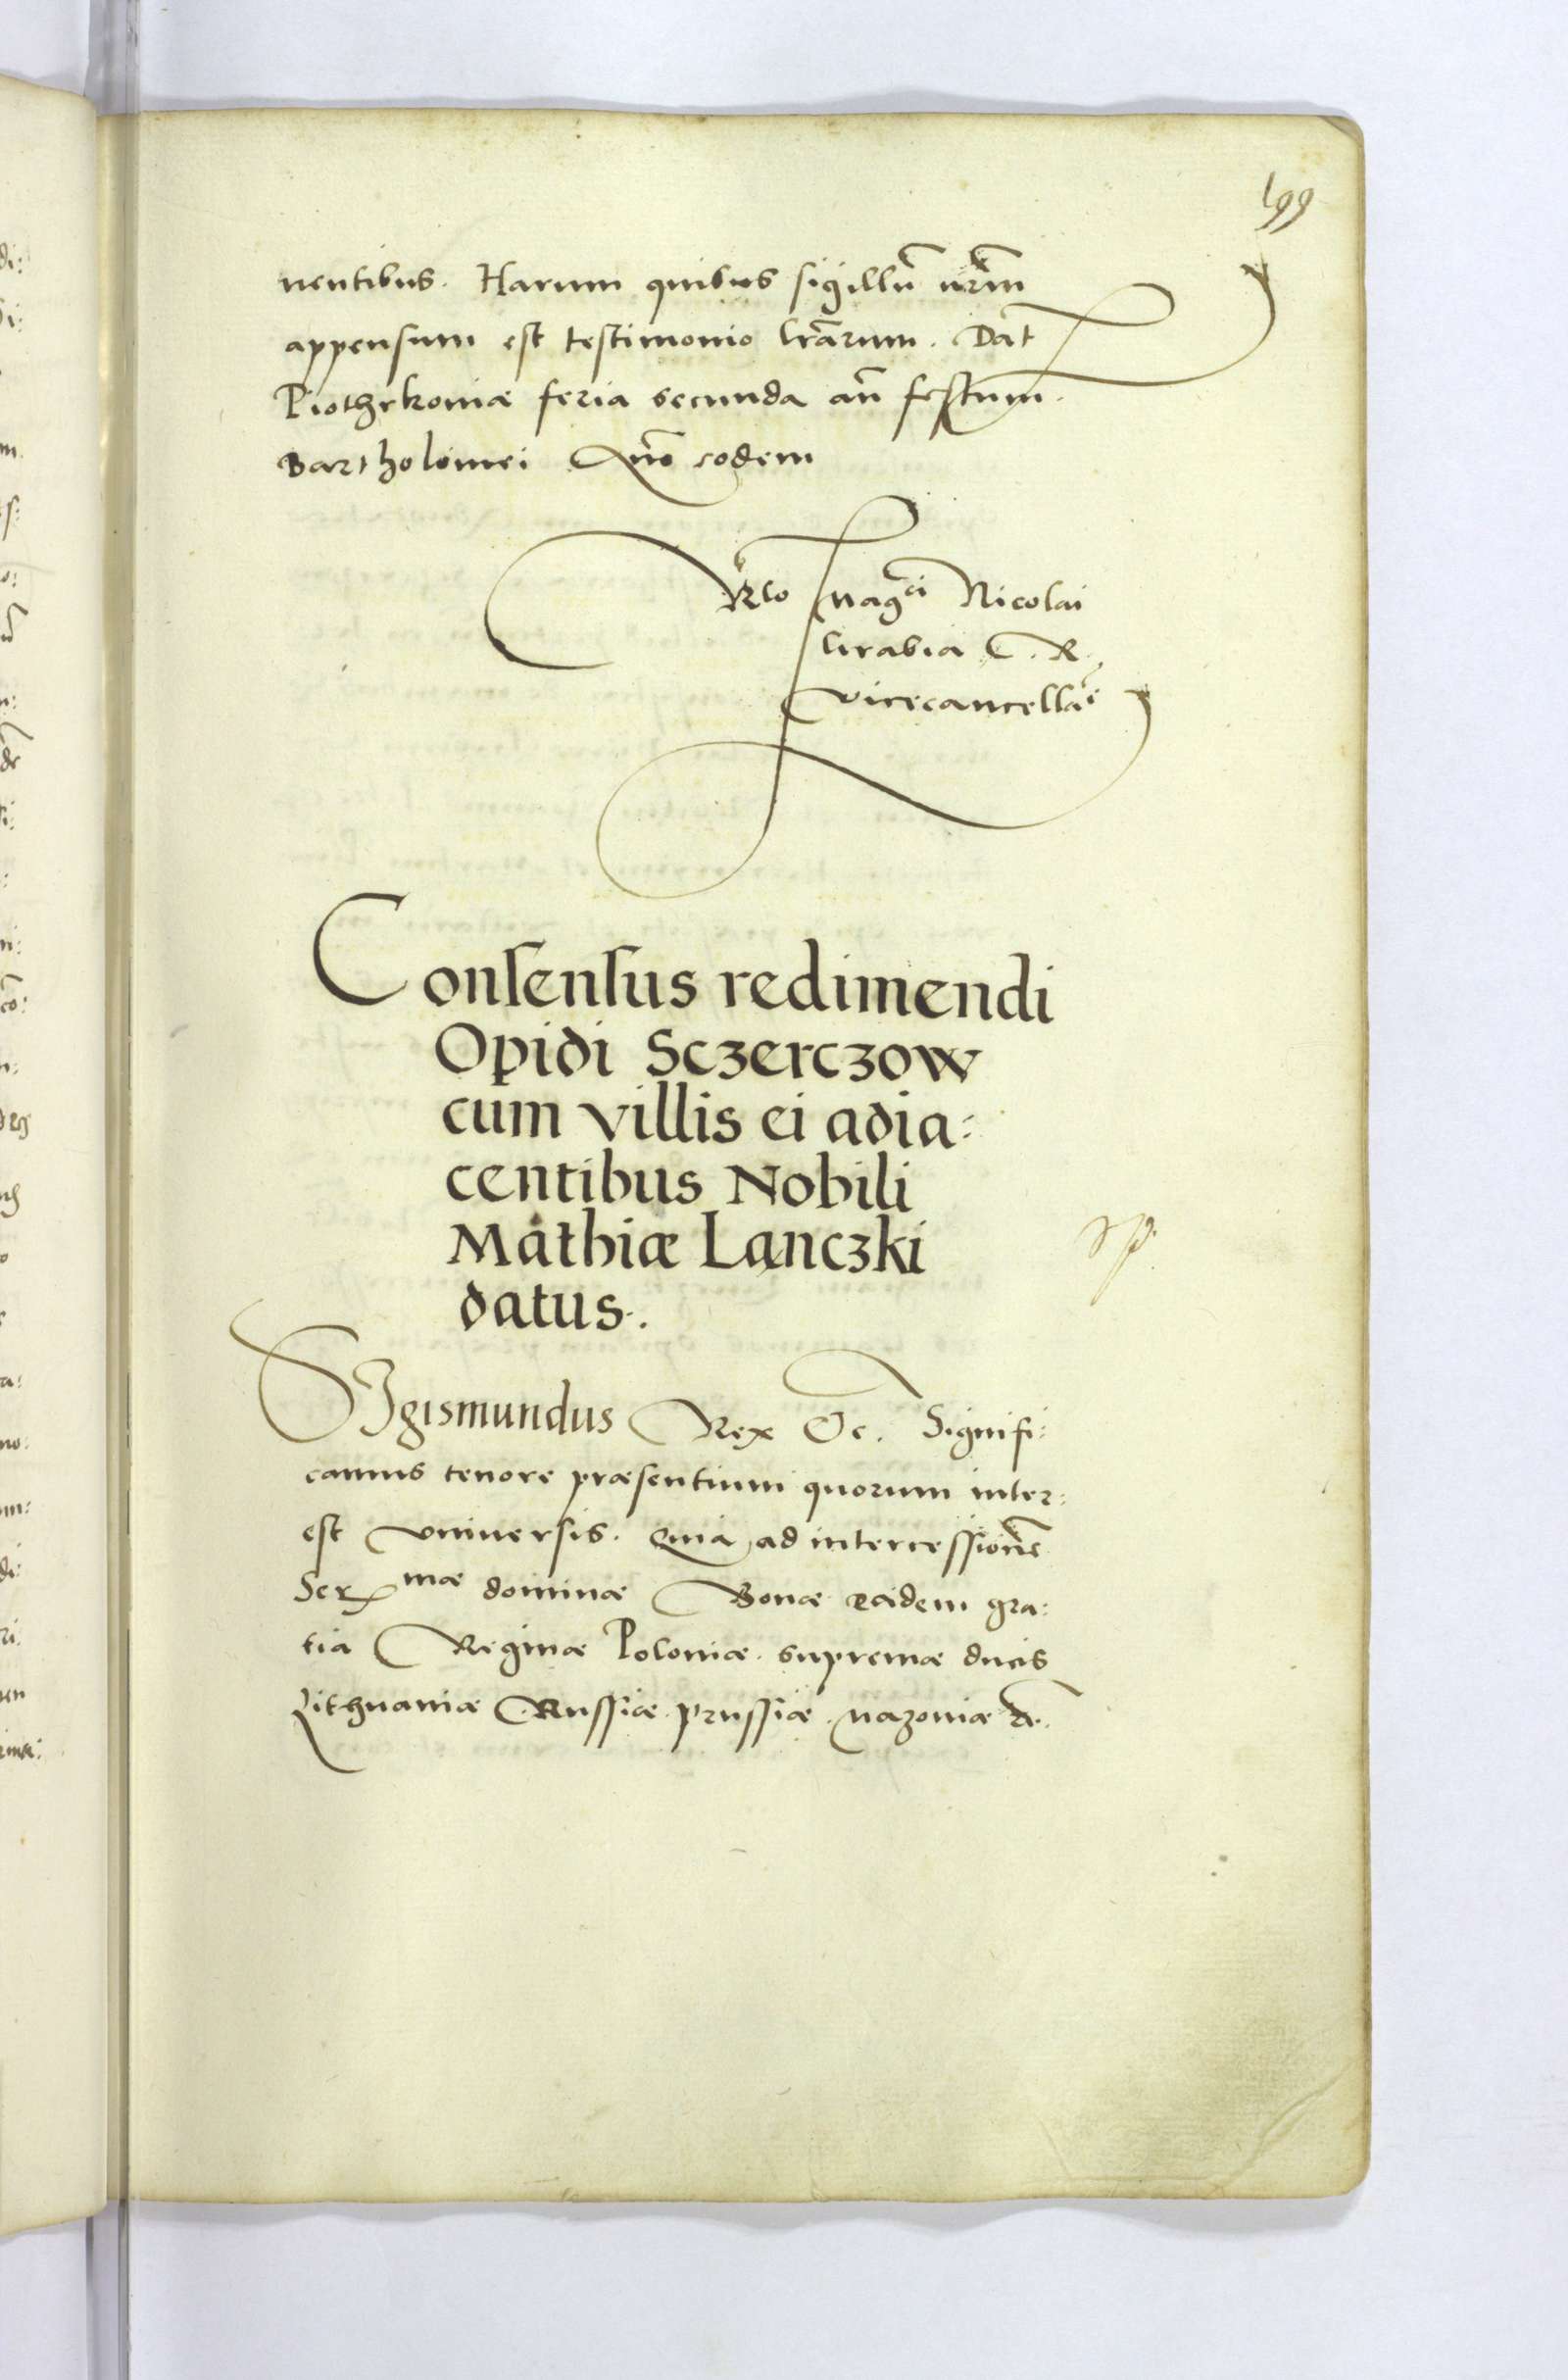 199
nentibus. Harum quibus sigillū nr̄m
appensum est testimonio lr̄arum. Dat
Piothrkoviæ feria secunda an̄ festum.
Bartholomei Anno eodem
Rlo Mag^ci Nicolai
Grabia C. R.
vicecancella^i
Consensus redimendi
Opidi Sczerczow
cum villis ei adia:
centibus Nobili
Mathiæ Lanczki
datus.
SIgismundus Rex &c. Signifi:
camus tenore præsentium quorum inter:
est universis. Quia ad intercessionē
Ser^mæ dominæ Bonæ eadem gra:
tia Reginæ Poloniæ. supremæ ducis
Lithuaniæ Russiæ. prussiæ. Mazoviæ &c.